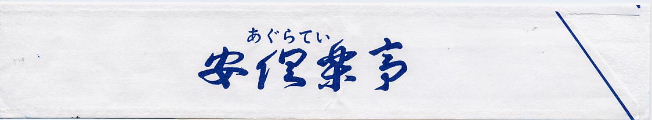 あぐらてい
安倶楽亭